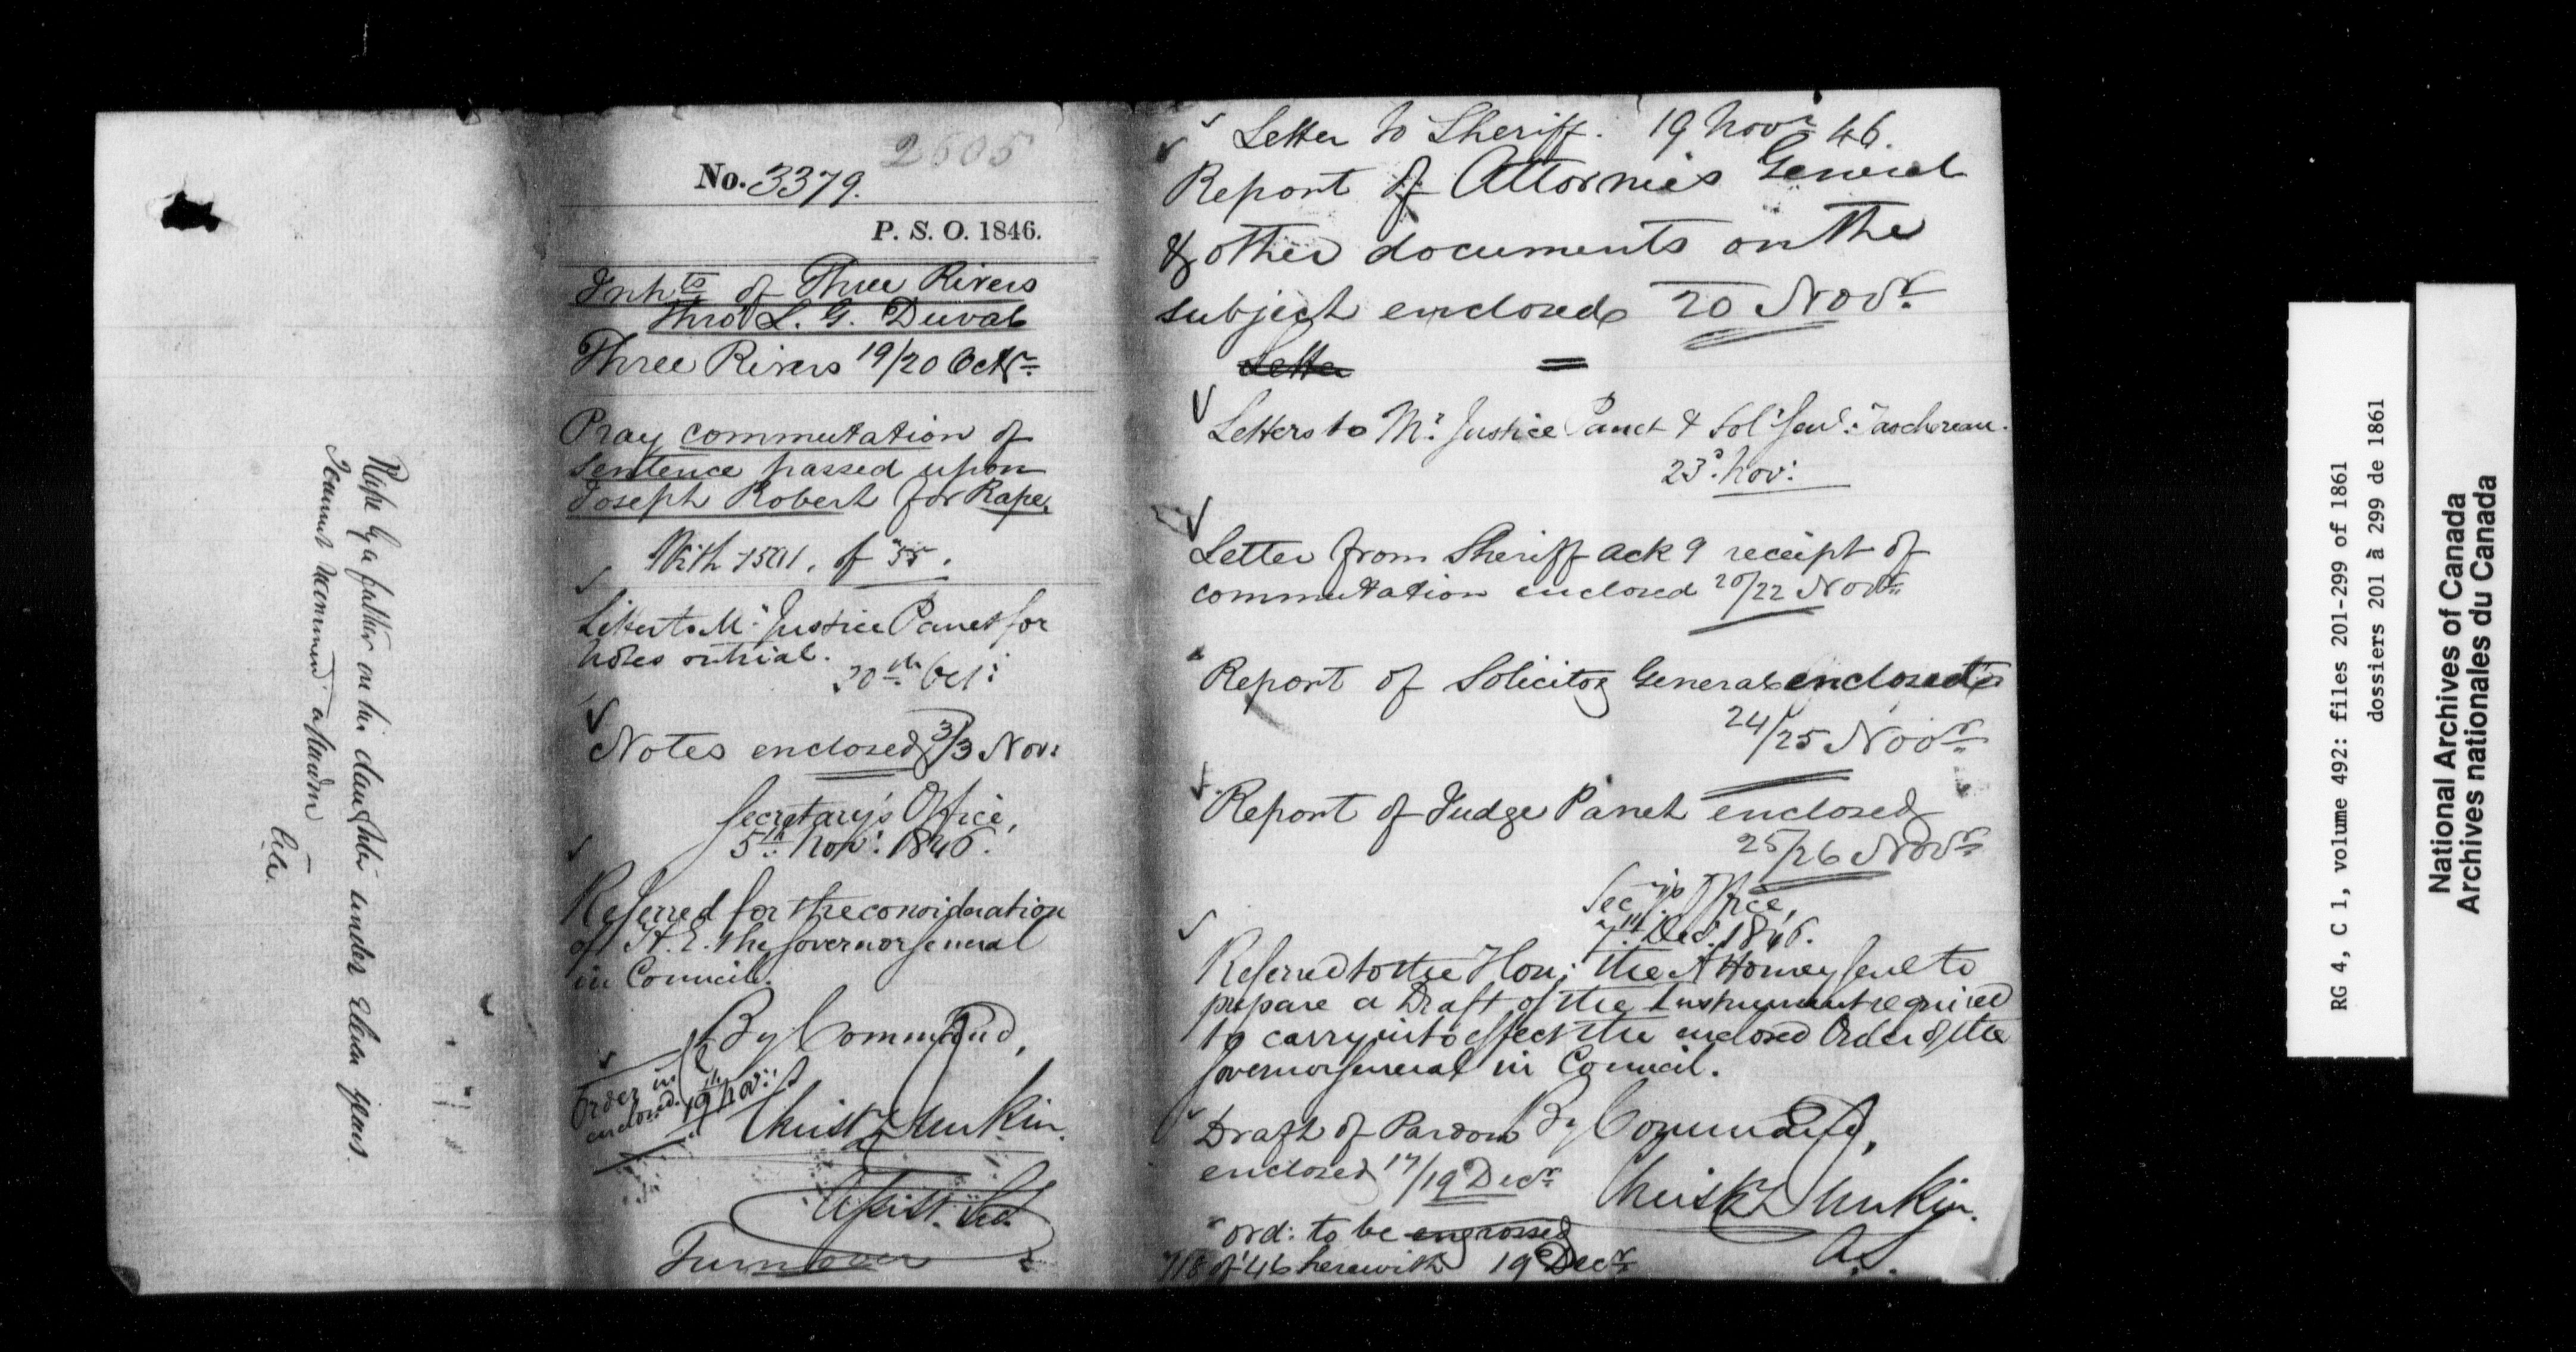 2605
No. 3379.
P. S. O. 1846.
Inhts of Three Rivers
thro L. G. Duval
Three Rivers 19/20 Octr
Pray commutation of
sentence passed upon
Joseph Robert for Rape.
With 1501. of 55.
Letter to Mr Justice Panet for
notes on trial.
20th Oct:
Notes enclosed 3/3 Nov:
Secretary's Office,
5th Nov: 1846.
Referred for the consideration
of H. E. the Governor General
in Council.
By Command,
Order in
enclosed. 19th Nov:
Christ Dunkin.
Assist. Sec.
Turn over
Rape by a father on his daughter under Eleven years.
I cannot recommend
Letter to Sheriff. 19 Novr 46.
Report of Attornies General
& other documents on the
subject enclosed 20 Novr.
Letter
Letters to Mr. Justice Panet & Sol. Genl. Taschereau.
23d. Nov:
Letter from Sheriff ackg receipt of
commutation enclosed 20/22 Novr
Report of Solicitor General enclosed
24/25 Novr
Report of Judge Panet enclosed
25/26 Novr
Secy's Office,
7th Dec. 1846.
Referred to the Hon: the Attorney Genl to
prepare a Draft of the Instrument required
to carry into effect the enclosed Order of the
Governor General in Council.
By Command,
Draft of Pardon
enclosed 17/19 Decr
Christ Dunkin.
A.S.
ord: to be engrossed
718 of '46 herewith 19 Decr
RG 4, C 1, volume 492: files 201-299 of 1861
dossiers 201 à 299 de 1861
National Archives of Canada
Archives nationales du Canada